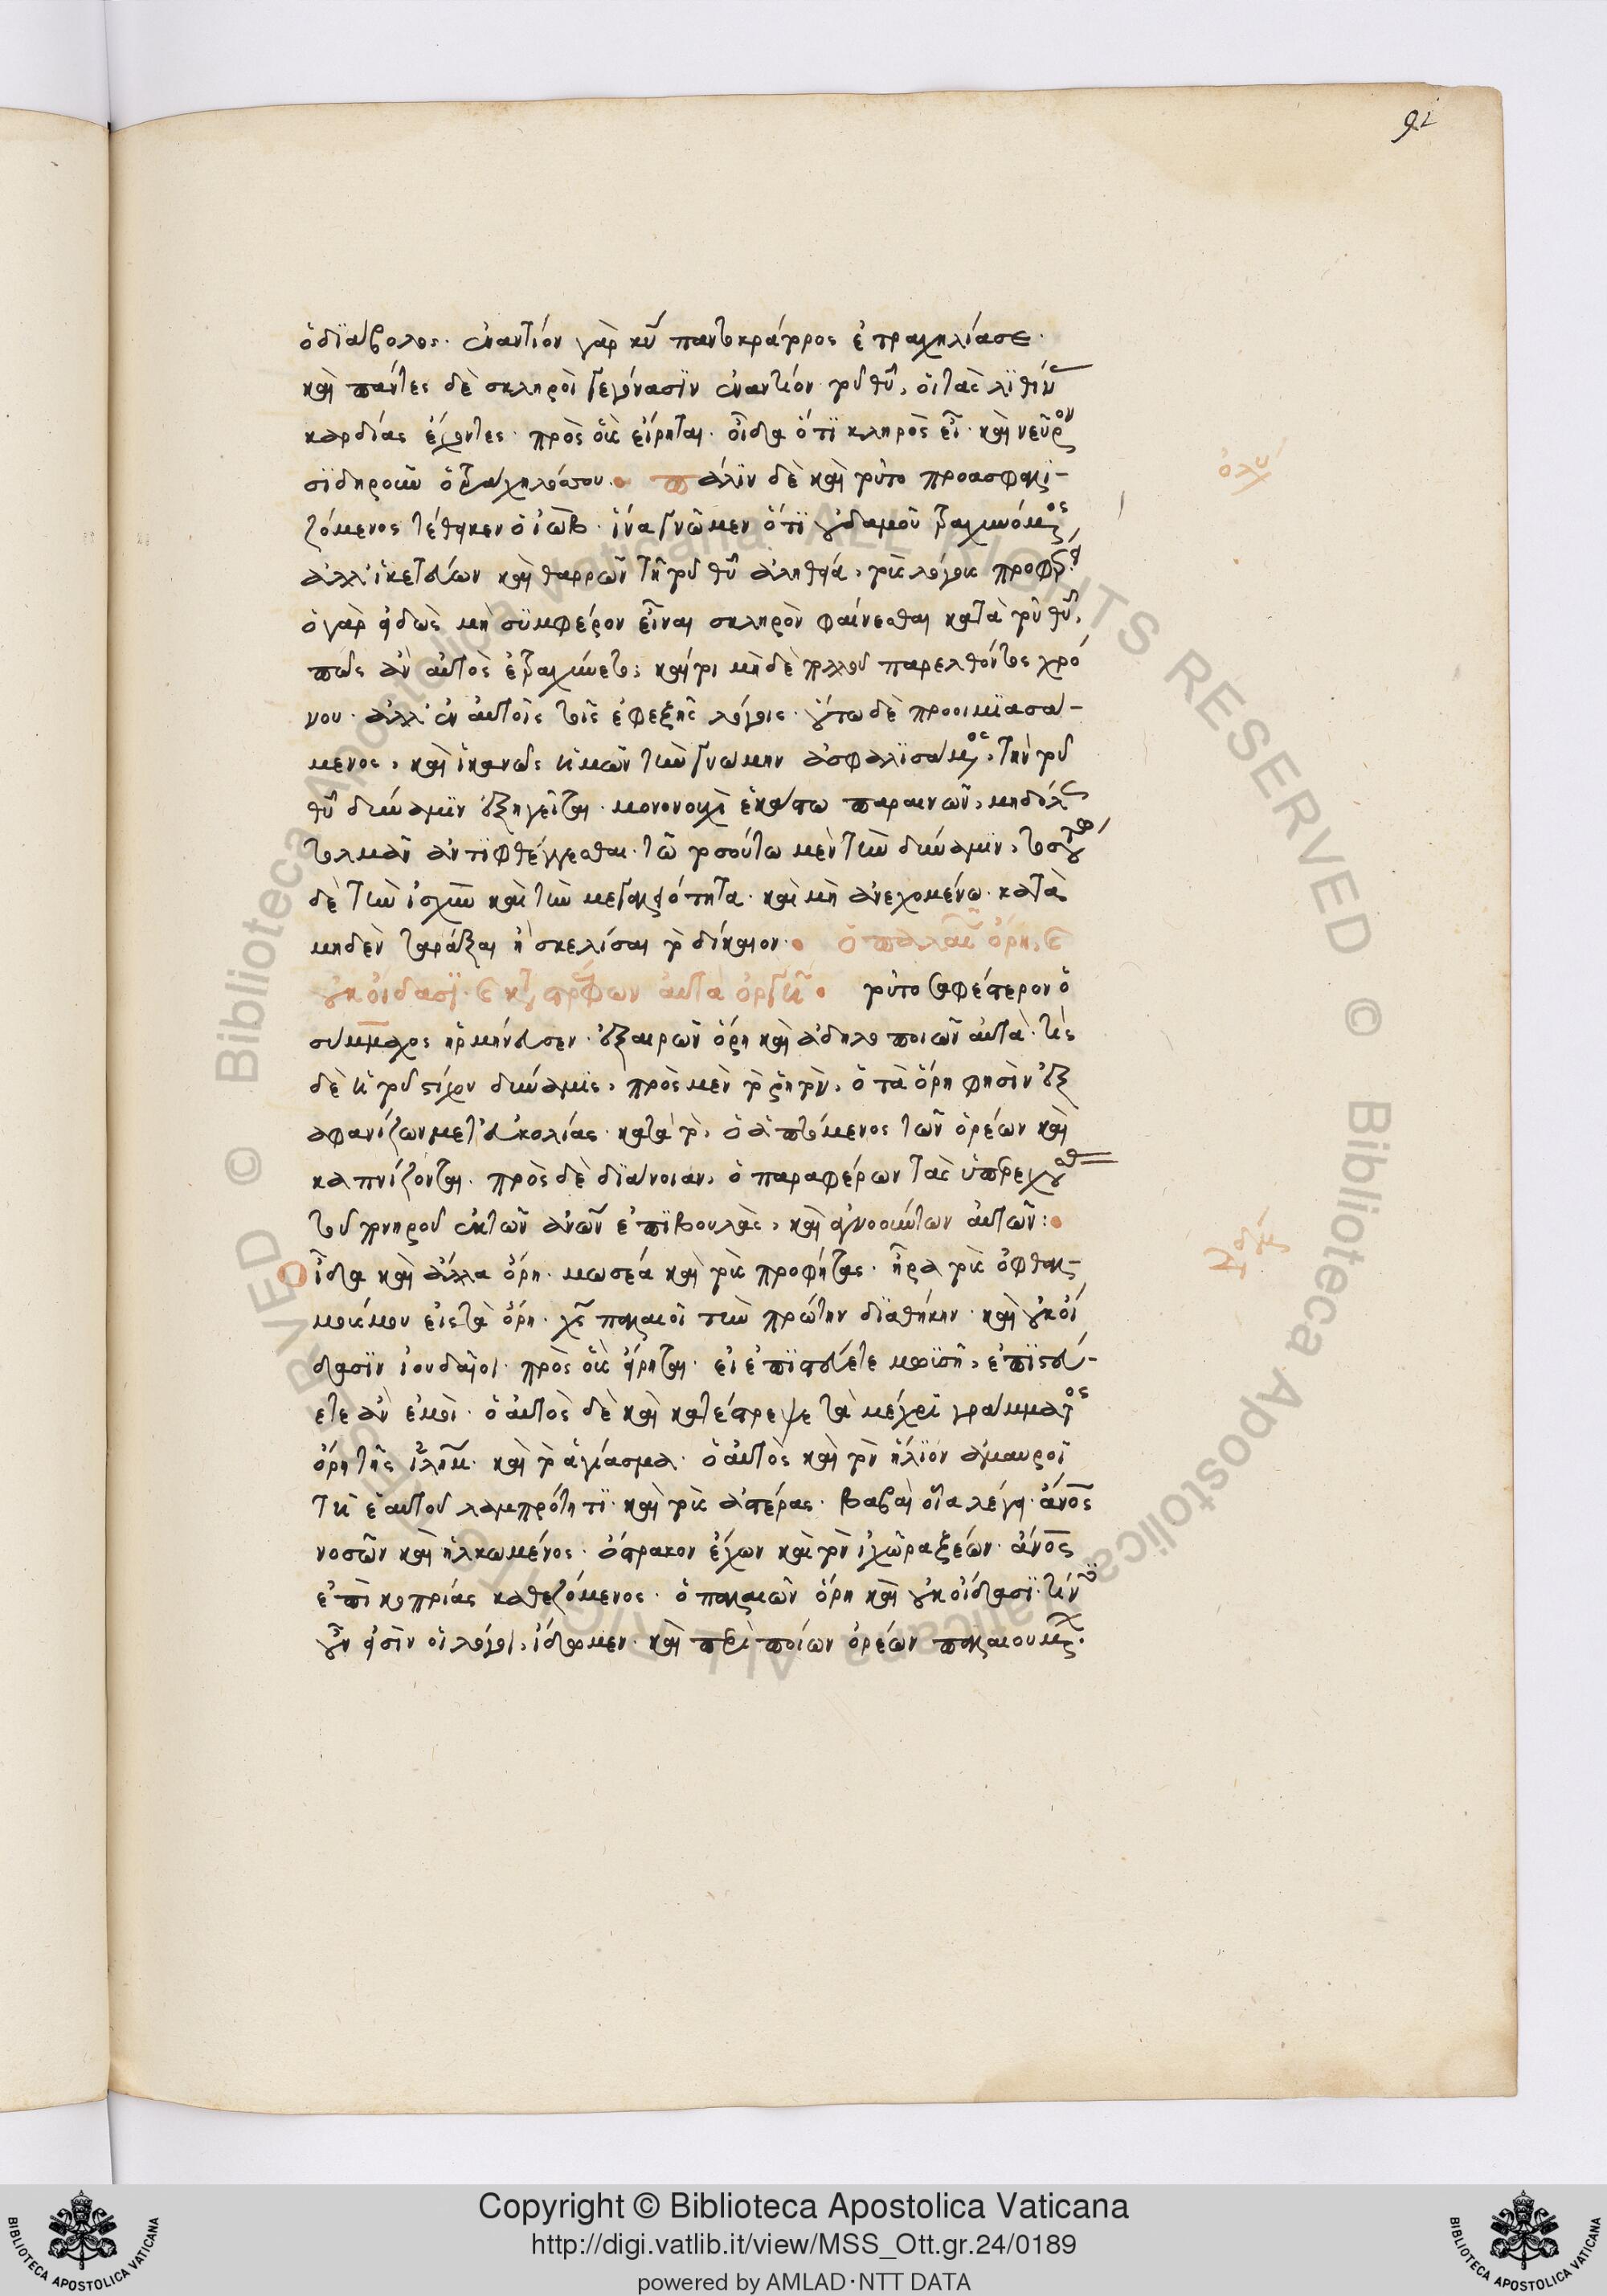 92
ὁ διάβολος· ἐναντίον γὰρ κυ παντοκράτορος ἐτραχηλίασε·
καὶ πάντες δὲ σκληροὶ γεγόνασϊν ἐναντίον τοῦ θυ, οἱ τὰς λϊθίν
καρδίας ἔχοντες· πρὸς οὓς εἴρηται· οἶδα ὅτϊ κληρὸς εἶ· καὶ νεῦρον
σϊδηροῦν ὁ τράχηλός σου· πάλϊν δὲ καὶ τοῦτο προασφαλϊ-
ζόμενος τέθηκεν ὁ ἰὼβ· ἵνα γνῶμεν ὅτϊ οὐδαμοῦ τραχυνόμος
ἀλλ' ἱκετεύων καὶ θαρρῶν τῆ τοῦ θυ ἀληθεία, τοὺς λόγους προφέρει
ὁ γὰρ εἰδὼς μὴ σϋμφέρον εἶναι σκληρὸν φαίνεσθαι κατὰ τοῦ θυ,
πῶς ἂν αὐτὸς ἐτραχύνετο; καίτοι μηδὲ πολλοῦ παρελθόντος χρό
νου· ἀλλ' ἐν αὐτοῖς τοῖς ἐφεξῆς λόγοις· οὕτω δὲ προοιμϊασά-
μενος, καὶ ἱκανῶς ἡμῶν τὴν γνώμην ἀσφαλϊσάμος, τὴν τοῦ
θυ δύναμϊν ἐξηγεῖται· μονονουχὶ ἑκάστω παραινῶν, μηδόλως
τολμᾶν ἀντϊφθέγγεσθαι· τῶ τοσούτω μὲν τὴν δύναμϊν, τοσούτω
δὲ τὴν ἰσχὺν καὶ τὴν μεγαλειότητα· καὶ μὴ ἀνεχομένω· κατὰ
μηδὲν ταράξαι ἢ σκελίσαι τὸ δίκαιον· ὁ παλαιῶν ὄρη, ϵ
οὐκ οἴδασϊ· ϵ καταστρέφων αὐτὰ ὀργῆ· τοῦτο σαφέστερον ὁ
σύμμαχος ἡρμήνευσεν· ἐξαιρῶν ὄρη καὶ ἀδηλοποιῶν αὐτὰ· τίς
δὲ ἡ τοῦ στίχου δύναμϊς, πρὸς μὲν τὸ ῥητὸν, ὁ τὰ ὄρη φησὶν ἐξ
αφανίζων μετ' εὐκολίας· κατὰ τὸ, ὁ ἁπτόμενος τῶν ὀρέων καὶ
καπνίζονται· πρὸς δὲ δϊάνοιαν, ὁ παραφέρων τὰς ὑπερεχούσας
τοῦ πονηροῦ ἐκ τῶν ἀνων ἐπϊβουλὰς, καὶ ἀγνοούντων αὐτῶν:
Οἶδα καὶ ἄλλα ὄρη· μωσέα καὶ τοὺς προφήτας· ἦρα τοὺς ὀφθαλ-
μούς μου εἰς τὰ ὄρη· χς παλαιοῖ τὴν πρώτην δϊαθήκην· καὶ οὐκ οἴ
δασϊν ἰουδαῖοι· πρὸς οὓς εἴρηται· εἰ ἐπϊστεύετε μωϊσῆ, ἐπϊστεύ-
ετε ἂν ἐμοὶ· ὁ αὐτὸς δὲ καὶ κατέστρεψε τὰ μέχρϊ γράμματος
ὄρη τῆς ἰλημ· καὶ τὸ ἁγίασμα· ὁ αὐτὸς καὶ τὸν ἥλϊον ἀμαυροῖ
τῆ ἑαυτοῦ λαμπρότητϊ· καὶ τοὺς ἀστέρας· βαβαὶ οἷα λέγει· ἄνος
νοσῶν καὶ ἡλκωμένος· ὄστρακον ἔχων καὶ τὸν ἰχῶρα ξέων· ἄνος
ἐπὶ κοπρίας καθεζόμενος· ὁ παλαιῶν ὄρη καὶ οὐκ οἴδασϊ· τίνος
οὖν εἰσὶν οἱ λόγοι, ἴδωμεν· καὶ περὶ ποίων ὀρέων παλαιουμ·
ὀλυ